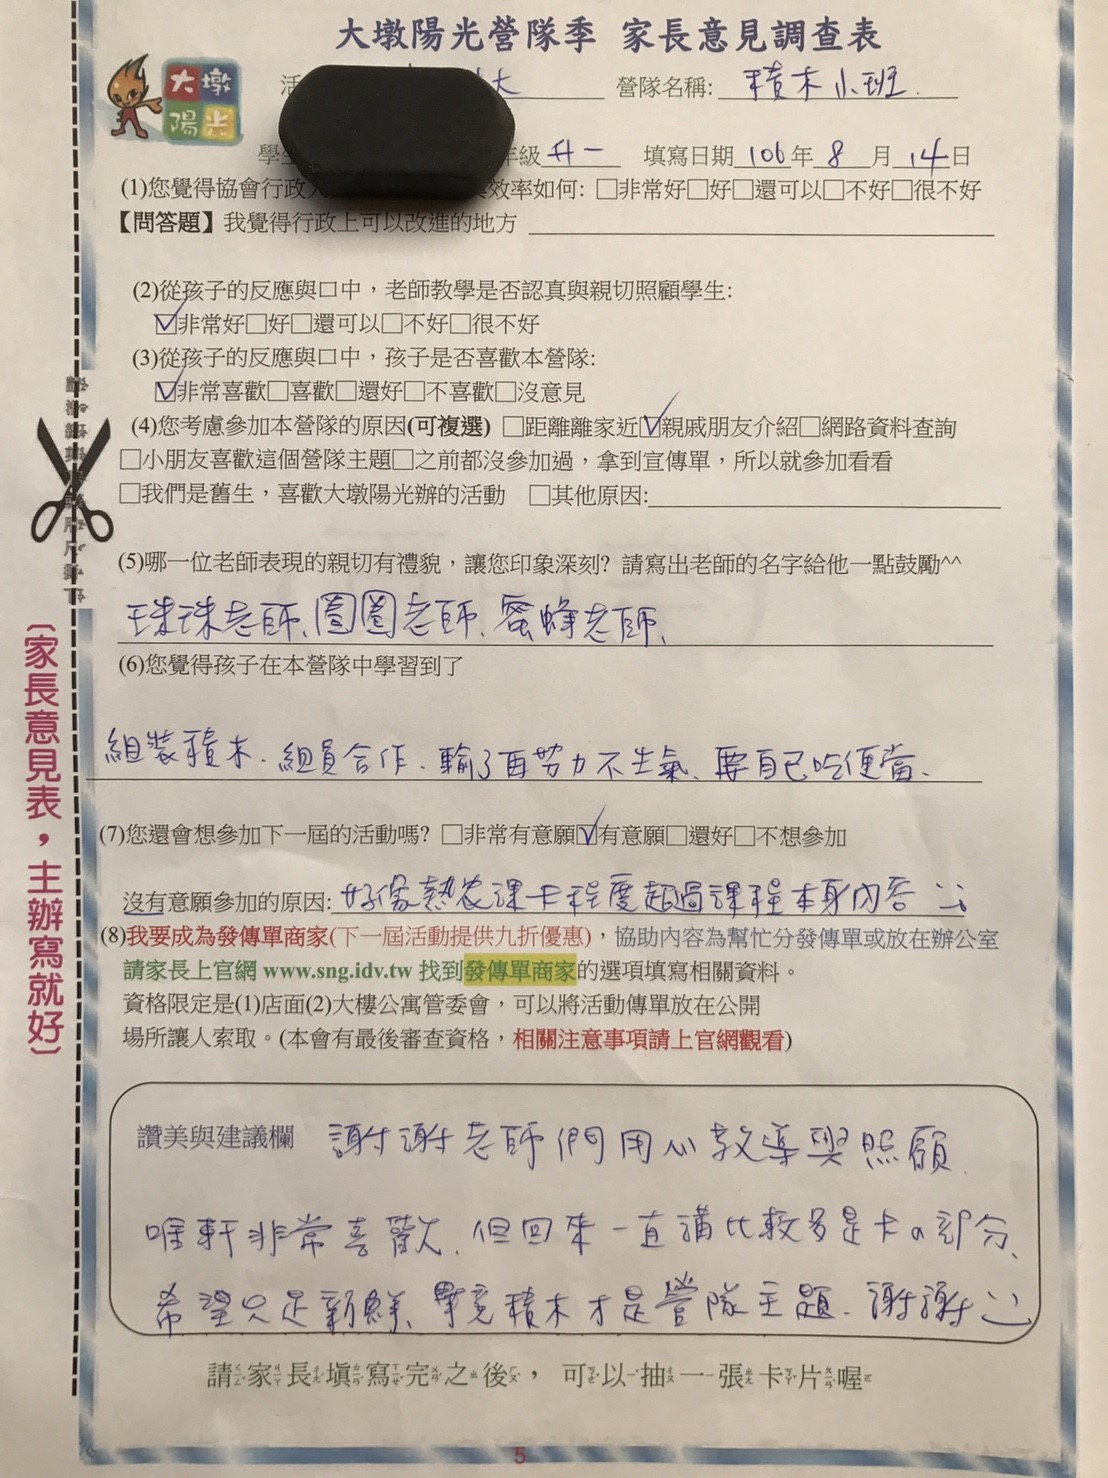 大墩陽光營隊季 家長意見調查表
大墩
陽光
活 大 營隊名稱: 積木小班.
學生 年級 升一 填寫日期 106 年 8 月 14 日
(1)您覺得協會行政人 效率如何: □非常好□好□還可以□不好□很不好
【問答題】我覺得行政上可以改進的地方
(2)從孩子的反應與口中，老師教學是否認真與親切照顧學生:
☑非常好□好□還可以□不好□很不好
(3)從孩子的反應與口中，孩子是否喜歡本營隊:
☑非常喜歡□喜歡□還好□不喜歡□沒意見
(4)您考慮參加本營隊的原因(可複選) □距離離家近☑親戚朋友介紹□網路資料查詢
□小朋友喜歡這個營隊主題□之前都沒參加過，拿到宣傳單，所以就參加看看
□我們是舊生，喜歡大墩陽光辦的活動 □其他原因:
(5)哪一位老師表現的親切有禮貌，讓您印象深刻? 請寫出老師的名字給他一點鼓勵^^
珠珠老師、圈圈老師、蜜蜂老師、
(6)您覺得孩子在本營隊中學習到了
組裝積木、組員合作、輸了再努力不生氣、要自己吃便當、
(7)您還會想參加下一屆的活動嗎? □非常有意願☑有意願□還好□不想參加
沒有意願參加的原因: 好像熱衷課卡程度超過課程本身內容
(8)我要成為發傳單商家(下一屆活動提供九折優惠)，協助內容為幫忙分發傳單或放在辦公室
請家長上官網 www.sng.idv.tw 找到發傳單商家的選項填寫相關資料。
資格限定是(1)店面(2)大樓公寓管委會，可以將活動傳單放在公開
場所讓人索取。(本會有最後審查資格，相關注意事項請上官網觀看)
讚美與建議欄 謝謝老師們用心教導與照顧
軒非常喜歡、但回來一直講比較多是卡の部分、
希望只是新鮮、畢竟積木才是營隊主題、謝謝
請家長填寫完之後， 可以抽一張卡片喔
〔家長意見表，主辦寫就好〕
5